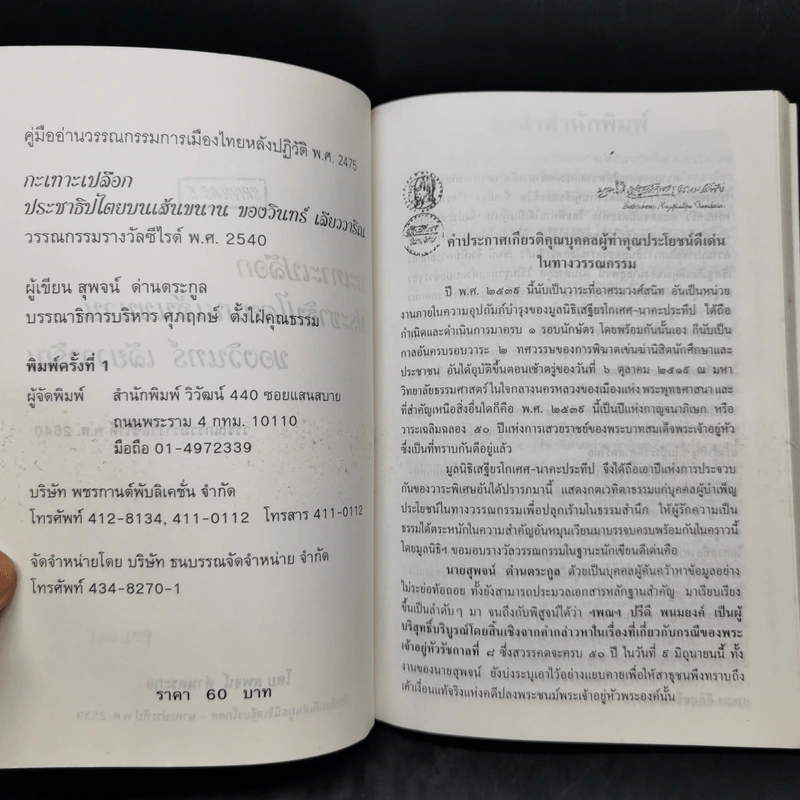 คู่มืออ่านวรรณกรรมการเมืองไทยหลังปฏิวัติ พ.ศ. 2475
กะเทาะเปลือก
ประชาธิปไตยบนเส้นขนาน ของวินทร์ เลียววาริณ
วรรณกรรมรางวัลซีไรต์ พ.ศ. 2540
ผู้เขียน สุพจน์ ด่านตระกูล
บรรณาธิการบริหาร ศุภฤกษ์ ตั้งใฝ่คุณธรรม
พิมพ์ครั้งที่ 1
ผู้จัดพิมพ์ สำนักพิมพ์ วิวัฒน์ 440 ซอยแสนสบาย
ถนนพระราม 4 กทม. 10110
มือถือ 01-4972339
บริษัท พชรกานต์พับลิเคชั่น จำกัด
โทรศัพท์ 412-8134, 411-0112 โทรสาร 411-0112
จัดจำหน่ายโดย บริษัท ธนบรรณจัดจำหน่าย จำกัด
โทรศัพท์ 434-8270-1
ราคา 60 บาท
คำประกาศเกียรติคุณบุคคลผู้ทำคุณประโยชน์ดีเด่น
ในทางวรรณกรรม
ปี พ.ศ. ๒๕๓๙ นี้นับเป็นวาระที่อาศรมวงศ์สนิท อันเป็นหน่วย
งานภายในความอุปถัมภ์บำรุงของมูลนิธิเสฐียรโกเศศ-นาคะประทีป ได้ถือ
กำเนิดและดำเนินการมาครบ ๑ รอบนักษัตร โดยพร้อมกันนั้นเอง ก็นับเป็น
กาลอันครบรอบวาระ ๒ ทศวรรษของการพิฆาตเข่นฆ่านิสิตนักศึกษาและ
ประชาชน อันได้อุบัติขึ้นตอนเช้าตรู่ของวันที่ ๖ ตุลาคม ๒๕๑๙ ณ มหา
วิทยาลัยธรรมศาสตร์ ในใจกลางนครหลวงของเมืองแห่ง พระพุทธศาสนา และ
ที่สำคัญเหนือสิ่งอื่นใดก็คือ พ.ศ. ๒๕๓๙ นี้เป็นปีแห่งกาญจนาภิเษก หรือ
วาระเฉลิมฉลอง ๕๐ ปีแห่งการเสวยราชย์ของพระบาทสมเด็จพระเจ้าอยู่หัว
ซึ่งเป็นที่ทราบกันดีอยู่แล้ว
มูลนิธิเสฐียรโกเศศ-นาคะประทีป จึงได้ถือเอาปีแห่งการประจวบ
กันของวาระพิเศษอันได้ปรารภมานี้ แสดงกตเวทิตาธรรมแก่บุคคลผู้บำเพ็ญ
ประโยชน์ในทางวรรณกรรมเพื่อปลุกเร้ามโนธรรมสำนึก ให้ผู้รักความเป็น
ธรรมได้ตระหนักในความสำคัญอันหมุนเวียนมาบรรจบครบพร้อมกันในคราวนี้
โดยมูลนิธิฯ ขอมอบรางวัลวรรณกรรมในฐานะนักเขียนดีเด่นคือ
นายสุพจน์ ด่านตระกูล ด้วยเป็นบุคคลผู้ค้นคว้าหาข้อมูลอย่าง
ไม่ระย่อท้อถอย ทั้งยังสามารถประมวลเอกสารหลักฐานสำคัญ มาเรียบเรียง
ขึ้นเป็นลำดับๆ มา จนถึงกับพิสูจน์ได้ว่า ฯพณฯ ปรีดี พนมยงค์ เป็นผู้
บริสุทธิ์บริบูรณ์โดยสิ้นเชิงจากคำกล่าวหาในเรื่องที่เกี่ยวกับกรณีของพระ
เจ้าอยู่หัวรัชกาลที่ ๘ ซึ่งสวรรคตจะครบ ๕๐ ปี ในวันที่ ๙ มิถุนายนนี้ ทั้ง
งานของนายสุพจน์ ยังบ่งระบุเอาไว้อย่างแยบคายเพื่อให้สาธุชนพึงทราบถึง
เค้าเงื่อนแท้จริงแห่งคดีปลงพระชนม์พระเจ้าอยู่หัวพระองค์นั้น